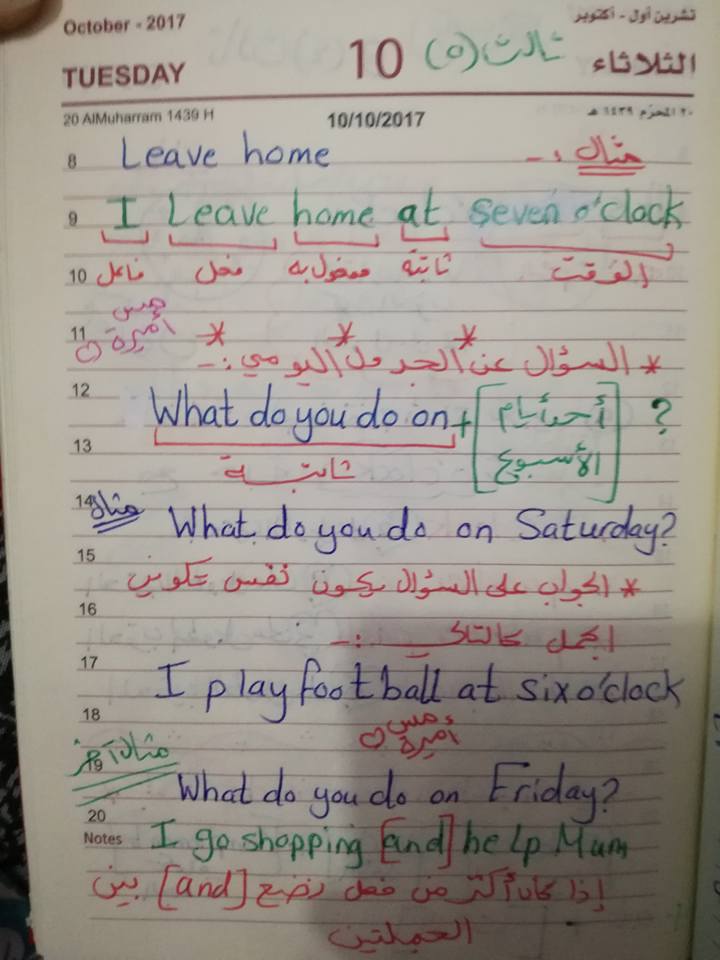 October - 2017 تشرين أول - أكتوبر
TUESDAY 10 ثالث (٥) الثلاثاء
20 AlMuharram 1439 H 10/10/2017 ٢٠ المحرّم ١٤٣٩ هـ
8 Leave home مثال :-
9 I Leave home at seven o'clock
10 فاعل فعل مفعول به ثابتة الوقت
11 مس أميرة
* السؤال عن الجدول اليومي :-
12 What do you do on + [أحد أيام الأسبوع] ?
13 ثابتة
14 مثال What do you do on Saturday?
15 * الجواب على السؤال يكون نفس تكوين
16 الجمل كالتالي :-
17 I play football at six o'clock
18 مس أميرة
19 مثال آخر What do you do on Friday?
20
Notes I go shopping [and] help Mum
إذا كان أكثر من فعل نضع [and] بين
الجملتين